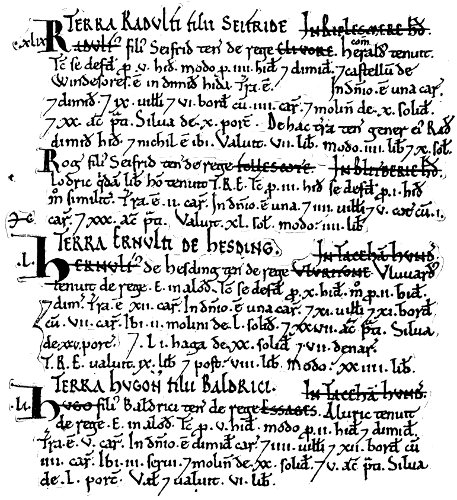 TERRA RADULFI FILII SEIFRIDE. In RIPLESMERE HD̃.
.xlix. RADULF' fili' Seifrid teñ de rege CLIVORE. herald' com̃ tenuit.
Tc̃ se defd̃ ꝓ .v. hid̃. modo ꝓ .iiii. hid̃ 7 dimid̃. 7 castellũ de
Windesores. ẽ in dimid̃ hida. Tr̃a ẽ In dñio. ẽ una car̃.
7 dimid̃. 7 ix. uilli 7 vi. bord̃ cũ .iiii. car̃. 7 moliñ de .x. solid̃.
7 xx. ac̃ p̃ti. Silua de .x. porc̃. De hac tr̃a teñ gener ei' Rad̃
dimid̃ hid̃ 7 nichil ẽ ibi. Valuit .vii. lib̃. modo .iiii. lib̃. 7 x. sol̃.
Rog' fili' Seifrid teñ de rege In BLITBERIE HD̃.
Lodric' q̃dã lib̃ hõ tenuit T.R.E. Tc̃ ꝓ .iii. hid̃ se defd̃ ꝓ .i. hid̃
m̃ similit'. Tr̃a ẽ .ii. car̃. In dñio. ẽ una. 7 iiii. uilli 7 v. cot̃ cũ .i.
car̃. 7 xxx. ac̃ p̃ti. Valuit .xl. sol̃. modo .iiii. lib̃.
TERRA ERNULFI DE HESDING. In TACCHĀ HUND̃.
.L. HERNULF' de hesding teñ de rege VLVRITONE. Vluuard'
tenuit de rege .E. in alod̃. Tc̃ se defd̃ ꝓ .x. hid̃. m̃ ꝓ .ii. hid̃.
7 dim̃. Tr̃a. ẽ .xii. car̃. In dñio. ẽ una car̃. 7 xi. uilli 7 xi. bord̃
cũ .vii. car̃. Ibi .ii. molini de .L. solid̃. 7 xxvii. ac̃ p̃ti. Silua
de .xxv. porc̃. 7 L.i. haga de .xx. solid̃ 7 vii. denar̃.
T.R.E. ualuit .ix. lib̃. 7 post̃ .viii. lib̃. modo .xxiiii. lib̃.
TERRA HUGON' FILII BALDRICI. In TACCHĀ HUND̃.
.Li. HUGO fili' Baldrici teñ de rege ESSAGES. Aluric tenuit
de rege .E. in alod̃. Tc̃ ꝓ .v. hid̃. modo ꝓ .ii. hid̃ 7 dimid̃.
Tr̃a. ẽ .v. car̃. In dñio. ẽ dimid̃ car̃. 7 iiii. uilli 7 xii. bord̃ cũ
.iiii. car̃. Ibi .iii. serui. 7 moliñ de .xx. solid̃. 7 v. ac̃ p̃ti. Silua
de .L. porc̃. Val̃ 7 ualuit .vi. lib̃.